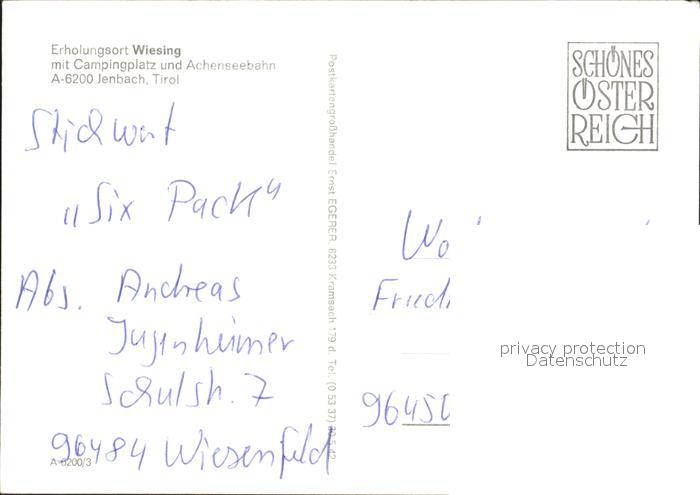 Erholungsort Wiesing
mit Campingplatz und Achenseebahn
A-6200 Jenbach, Tirol
SCHÖNES
ÖSTER
REICH
Stichwort
"Six Pack"
Abs. Andreas
Jugenheimer
Schulstr. 7
96484 Wiesenfeld
A-6200/3
Postkartengroßhandel Ernst EGERER, 6233 Kramsach 179 d, Tel. (0 53 37)
Wo
Fried
96450
privacy protection
Datenschutz